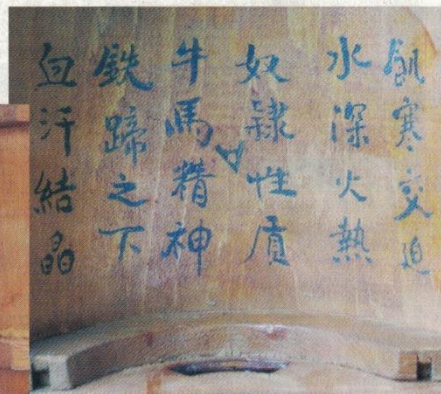 飢寒交迫
水深火熱
奴隸性质
牛馬精神
鉄蹄之下
血汗結晶